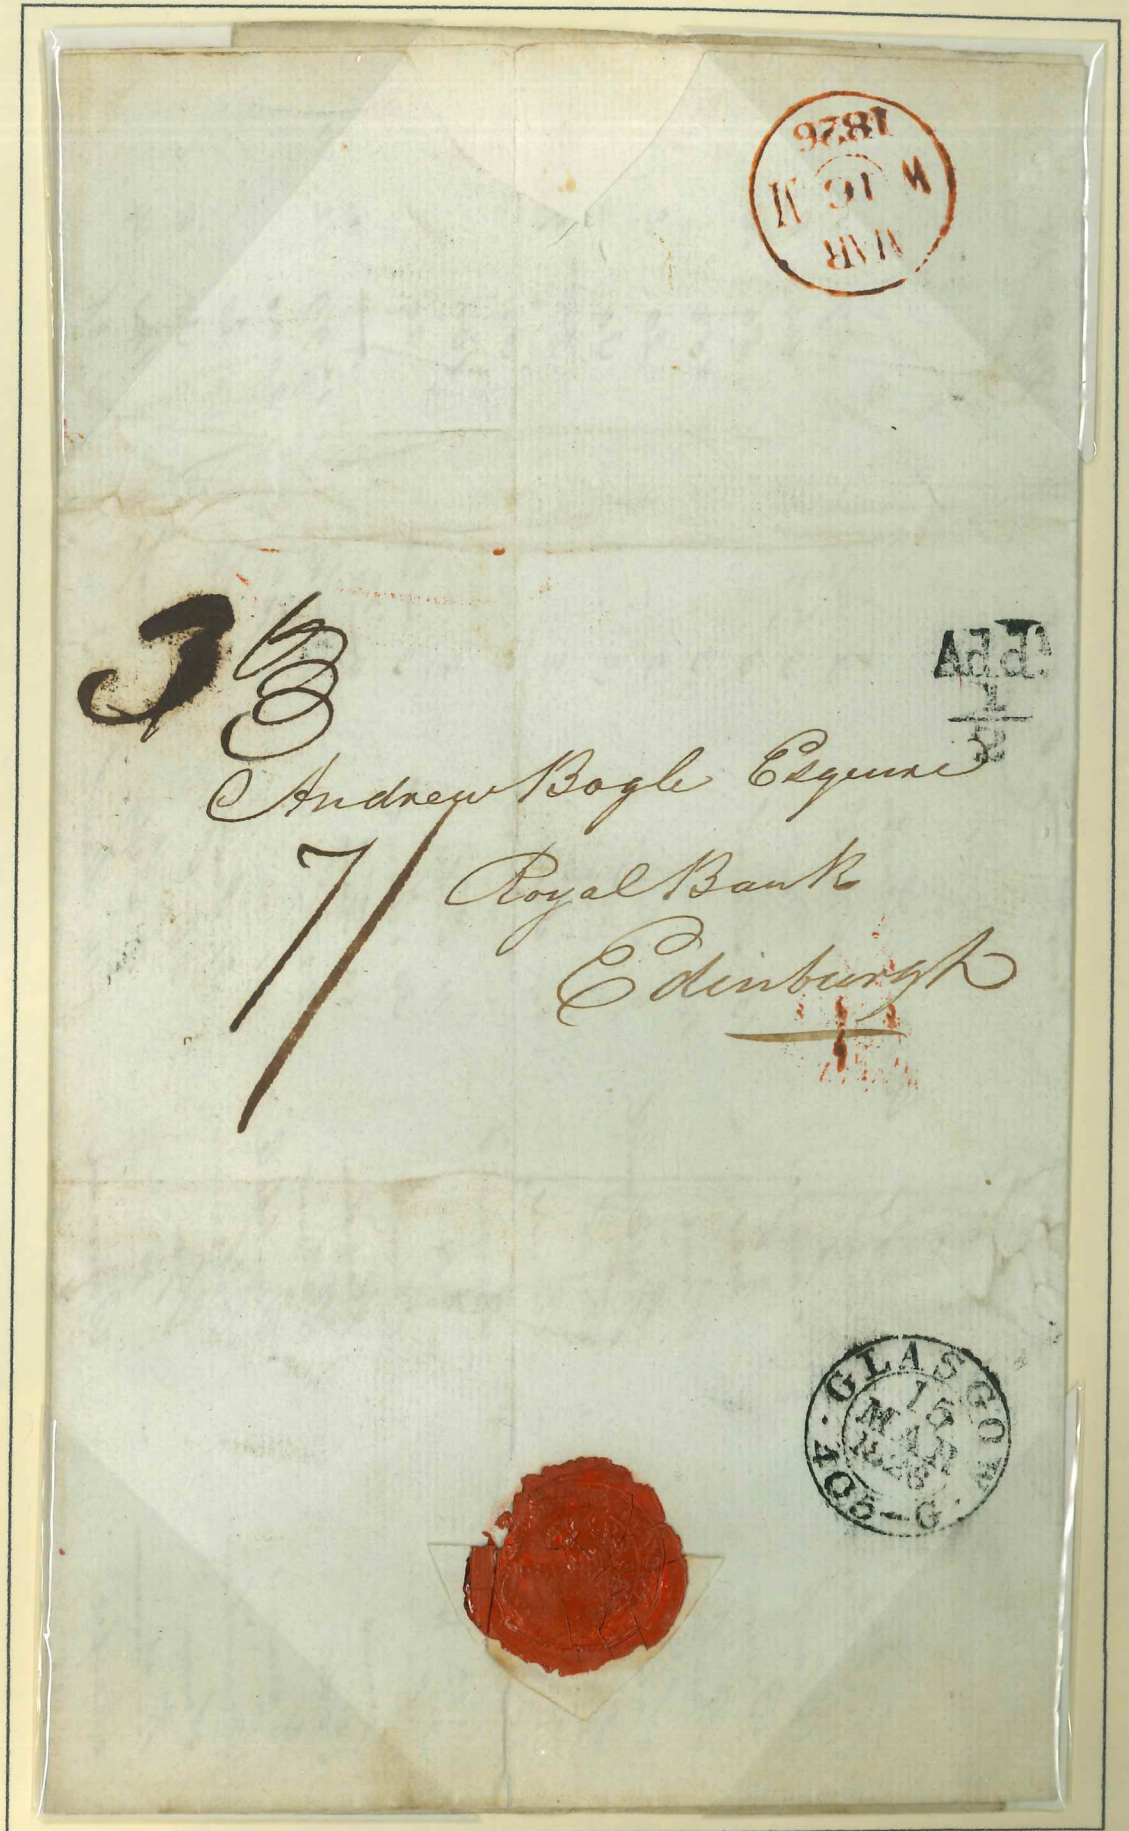 1826
M 16 M
MAR
3
Add.
1
2
Andrew Bogle Esquire
7/
Royal Bank
Edinburgh
GLASGOW
15
MAR
1826